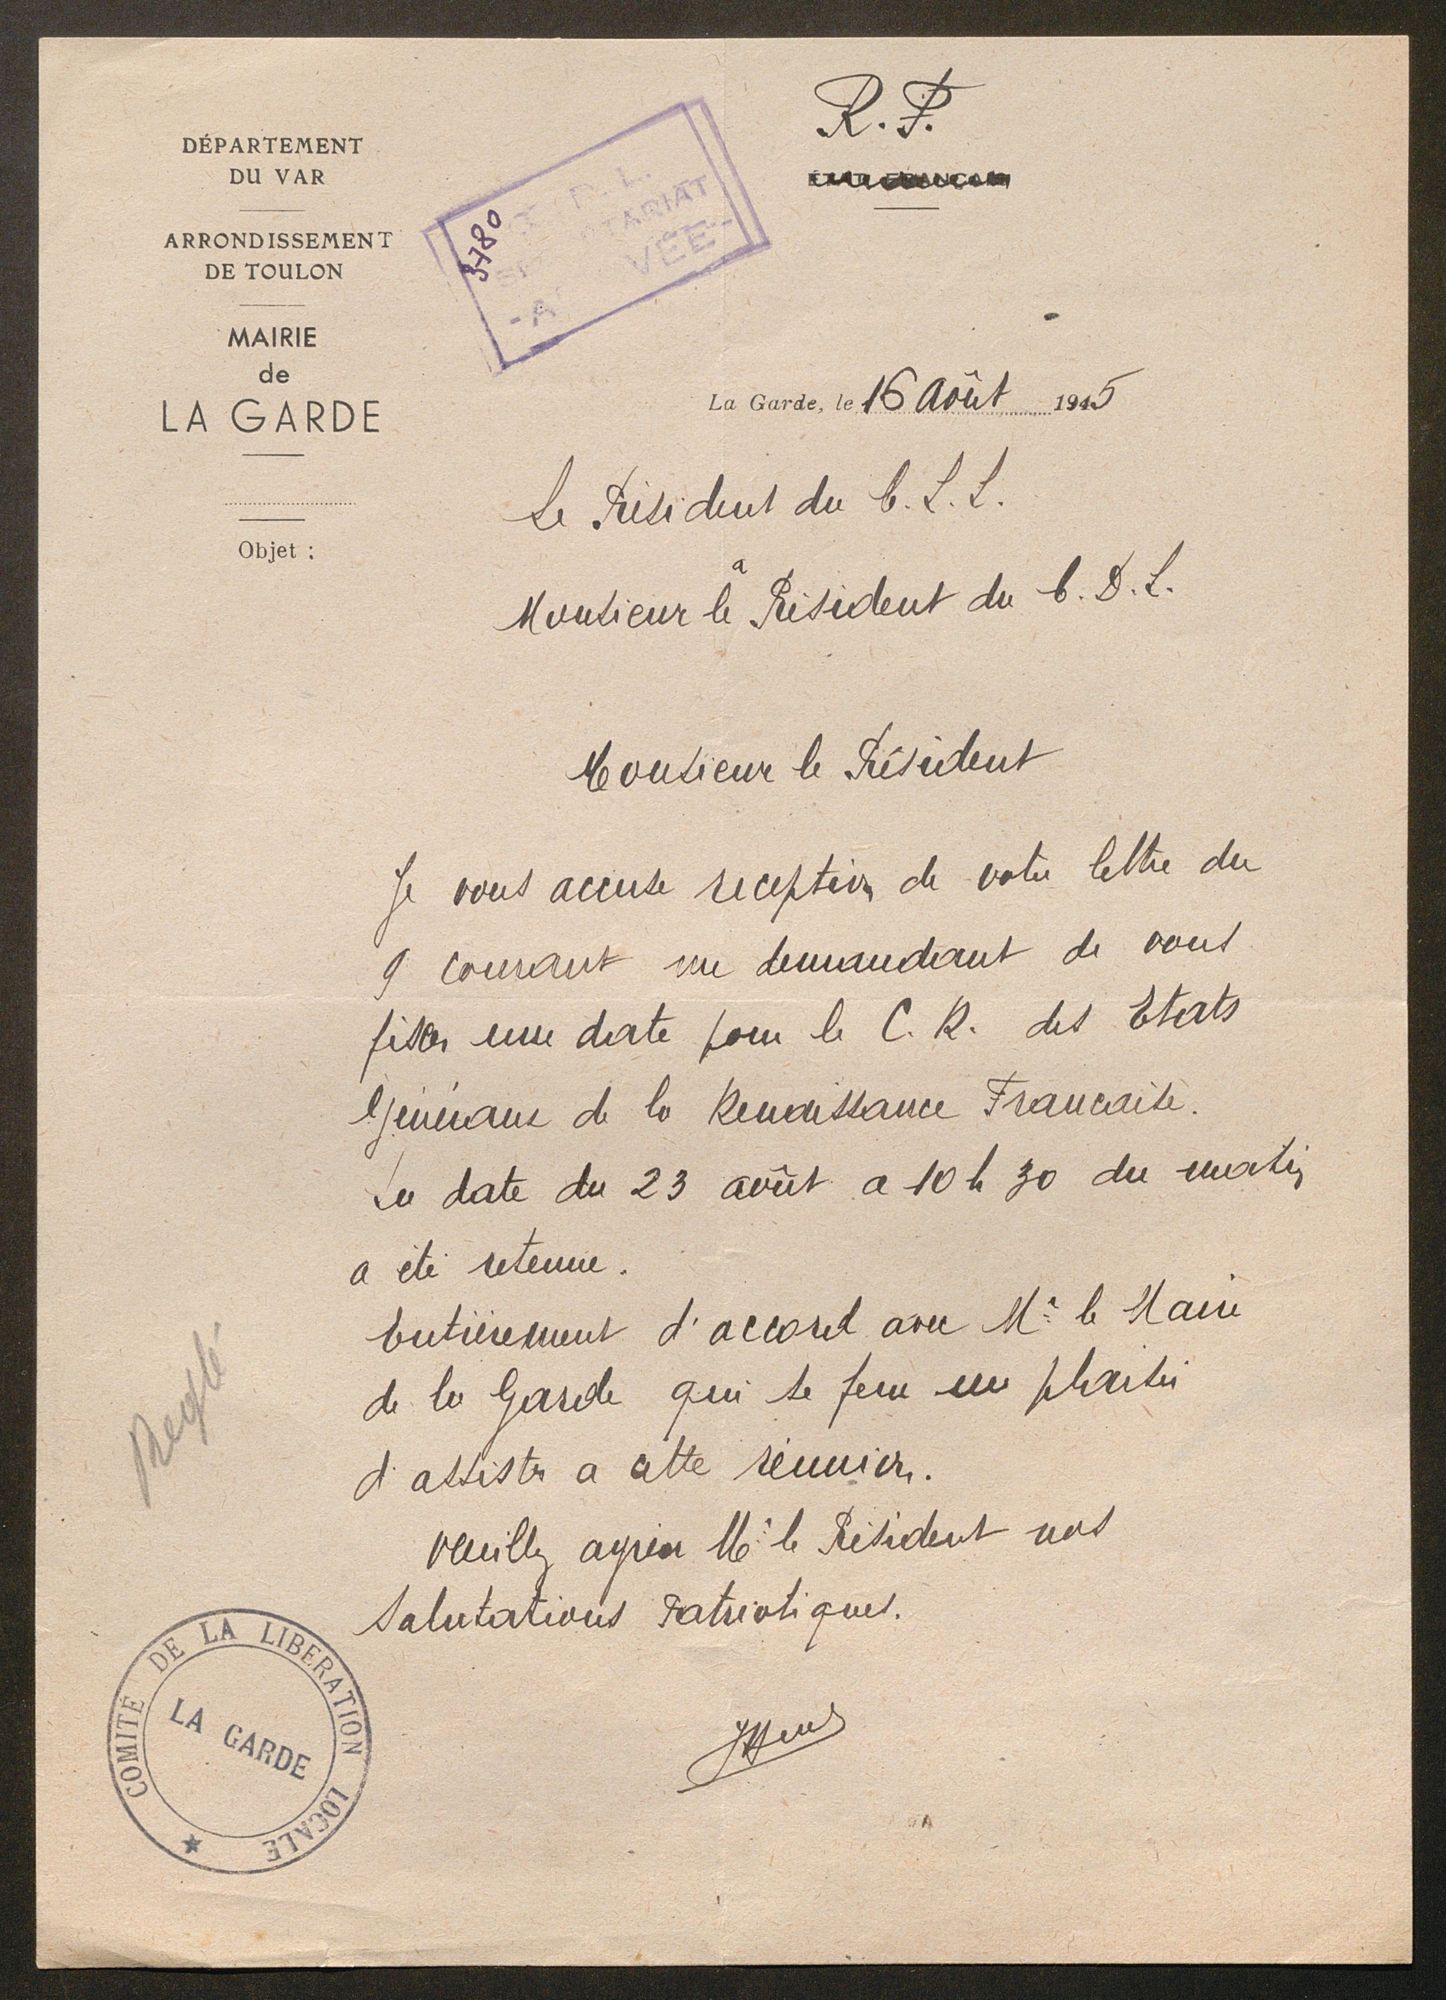 DÉPARTEMENT
DU VAR
ARRONDISSEMENT
DE TOULON
MAIRIE
de
LA GARDE
Objet :
C. D. L.
3780
R. F.
ÉTAT FRANÇAIS
La Garde, le 16 Août 1945
Le Président du C. L. L.
à
Monsieur le Président du C. D. L.
Monsieur le Président
Je vous accuse reception de votre lettre du
9 courant me demandant de vous
fixer une date pour le C. R. des Etats
Généraux de la Renaissance Francaise.
La date du 23 août a 10 h 30 du matin
a été retenue.
Entièrement d'accord avec Mr le Maire
de la Garde qui se fera un plaisir
d'assister a cette réunion.
Veuillez agréer Mr le Président nos
Salutations Patriotiques.
Reglé
COMITÉ DE LA LIBERATION LOCALE
LA GARDE